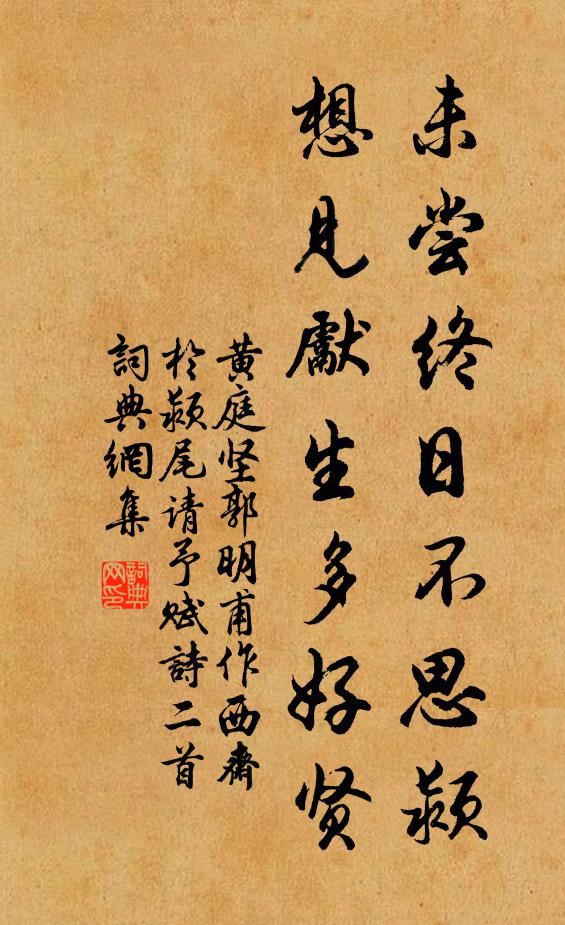 未尝终日不思颍
想見獻生多好贤
黄庭坚郭明甫作西齋
於颍尾请予赋詩二首
詞典網集
詞典网印